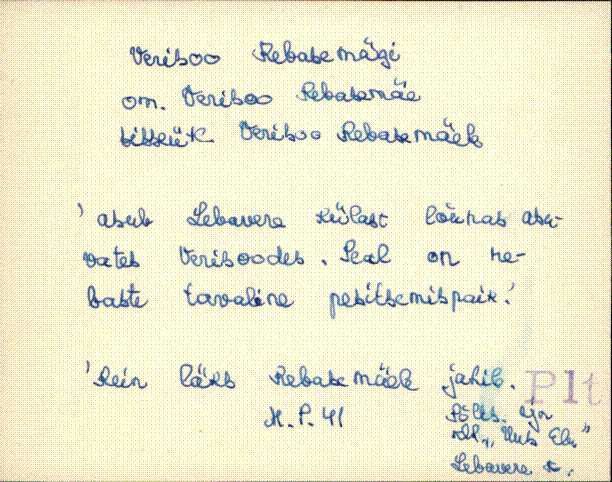 Verisoo Rebasemägi
om. Verisoo Rebasemäe
ütleük Verisoo Rebasemäele
' asub Lebavere külast lõunas asu-
vates Verisoodes. Seal on re-
baste tavaline pesitsemispaik.'
' Rein läks Rebasemäele jahile.
Plt
M. P. 41
Põlts. 
Lebavere k.